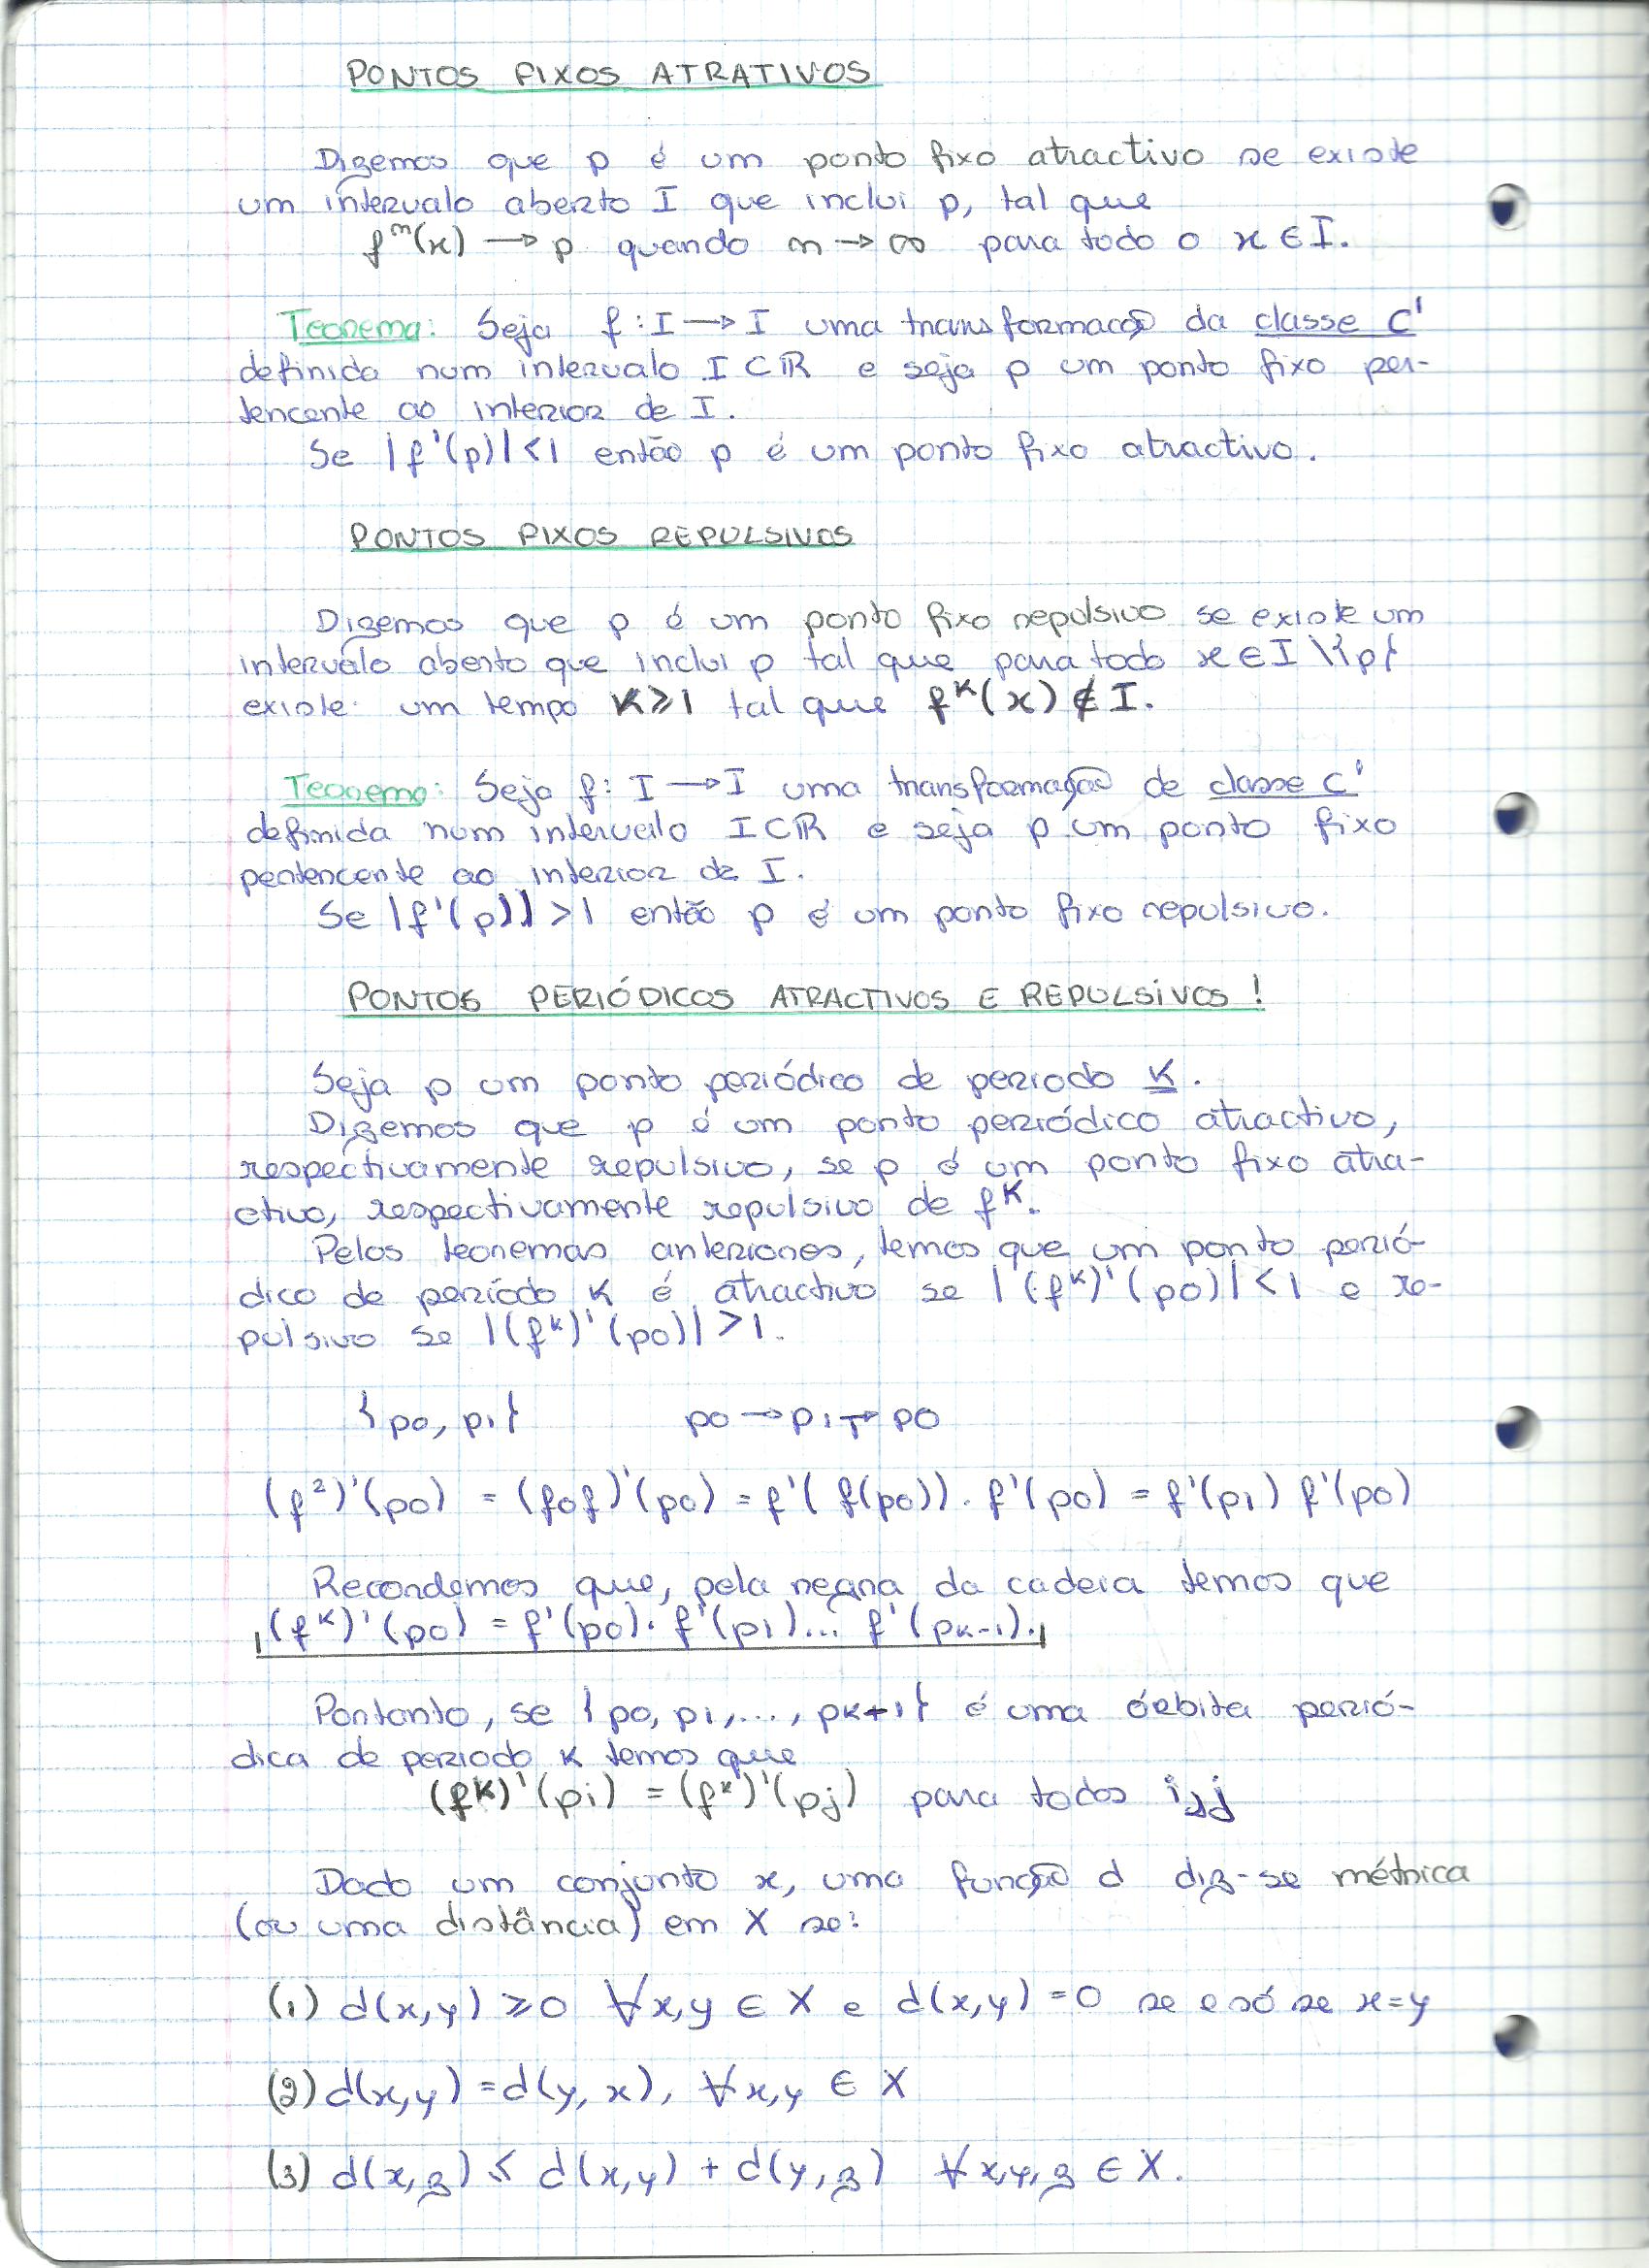 PONTOS FIXOS ATRATIVOS
Dizemos que p é um ponto fixo atractivo se existe
um intervalo aberto I que inclui p, tal que
fⁿ(x) → p quando n → ∞ para todo o x ∈ I.
Teorema: Seja f: I → I uma transformação da classe C¹
definida num intervalo I ⊂ ℝ e seja p um ponto fixo per-
tencente ao interior de I.
Se |f'(p)| < 1 então p é um ponto fixo atractivo.
PONTOS FIXOS REPULSIVOS
Dizemos que p é um ponto fixo repulsivo se existe um
intervalo aberto que inclui p tal que para todo x ∈ I \ {p}
existe um tempo K ⩾ 1 tal que fᴷ(x) ∉ I.
Teorema: Seja f: I → I uma transformação de classe C¹
definida num intervalo I ⊂ ℝ e seja p um ponto fixo
pertencente ao interior de I.
Se |f'(p)| > 1 então p é um ponto fixo repulsivo.
PONTOS PERIÓDICOS ATRACTIVOS E REPULSIVOS!
Seja p um ponto periódico de periodo K.
Dizemos que p é um ponto periódico atractivo,
respectivamente repulsivo, se p é um ponto fixo atra-
ctivo, respectivamente repulsivo de fᴷ.
Pelos teoremas anteriores, temos que um ponto perió-
dico de período K é atractivo se |(fᴷ)'(p0)| < 1 e re-
pulsivo se |(fᴷ)'(p0)| > 1.
{p0, p1} p0 → p1 → p0
(f²)'(p0) = (f∘f)'(p0) = f'(f(p0)). f'(p0) = f'(p1) f'(p0)
Recordemos que, pela regra da cadeia temos que
(fᴷ)'(p0) = f'(p0). f'(p1)... f'(pK-1).
Portanto, se {p0, p1, ..., pK+1} é uma órbita perió-
dica de periodo K temos que
(fᴷ)'(pi) = (fᴷ)'(pj) para todos i, j
Dado um conjunto x, uma função d diz-se métrica
(ou uma distância) em X se:
(1) d(x,y) ⩾ 0 ∀x,y ∈ X e d(x,y) = 0 se e só se x = y
(2) d(x,y) = d(y,x), ∀x,y ∈ X
(3) d(x,z) ⩽ d(x,y) + d(y,z) ∀x,y,z ∈ X.